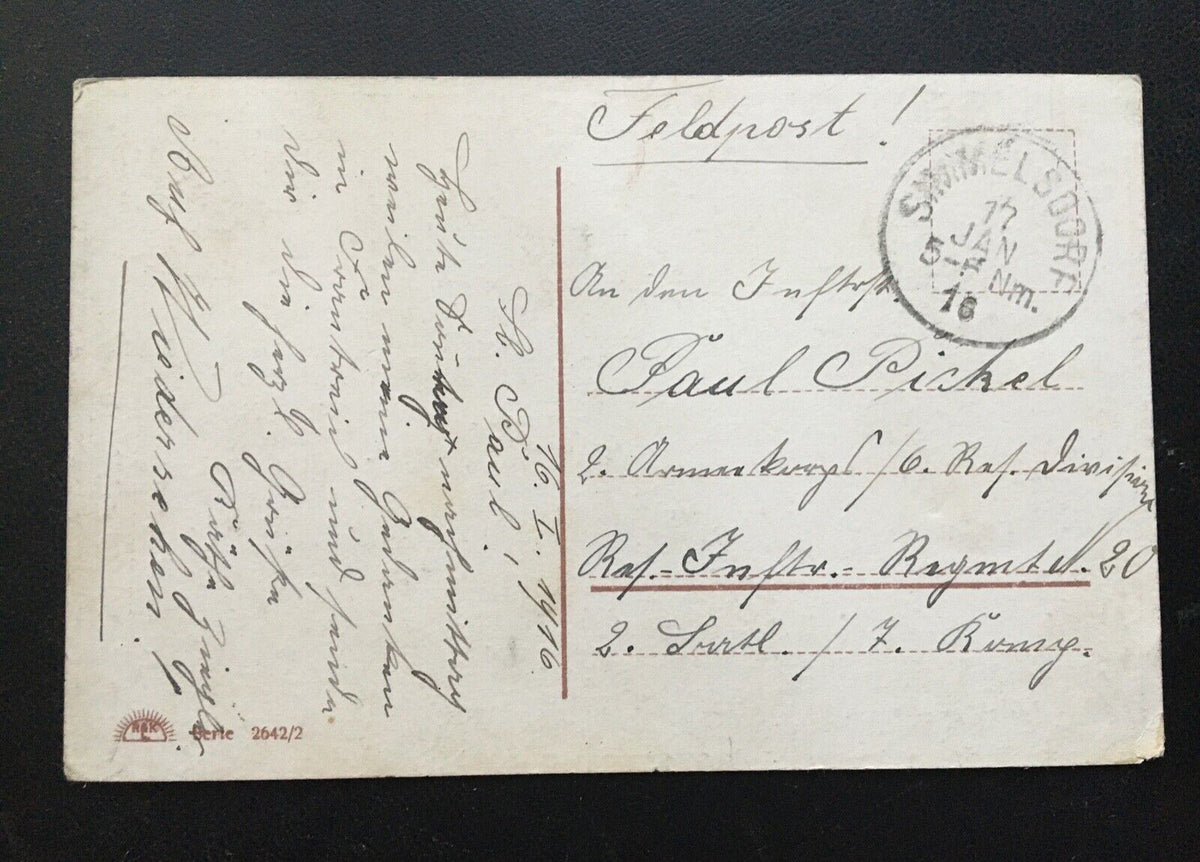 Feldpost!
SIMMELSDORF
17 JAN
5-6 Nm.
16
An den Inftrst.
Paul Pickel
2. Armeekorps / 6. Res. Division
Res.-Inftr.- Regmts. 20
2. Batl. / 7. Komp.
16. I. 1916
Lb. Paul!
Heute Sonntag nachmittag
weilen meine Gedanken
in Frankreich und sende
Dir die herzl. Grüße
Käthe
Auf Wiedersehen!
Serie 2642/2